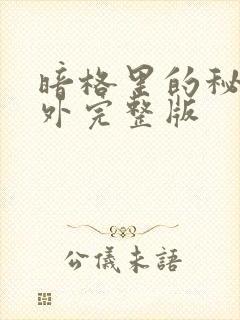 暗格里的秘
外完整版
公儀未語